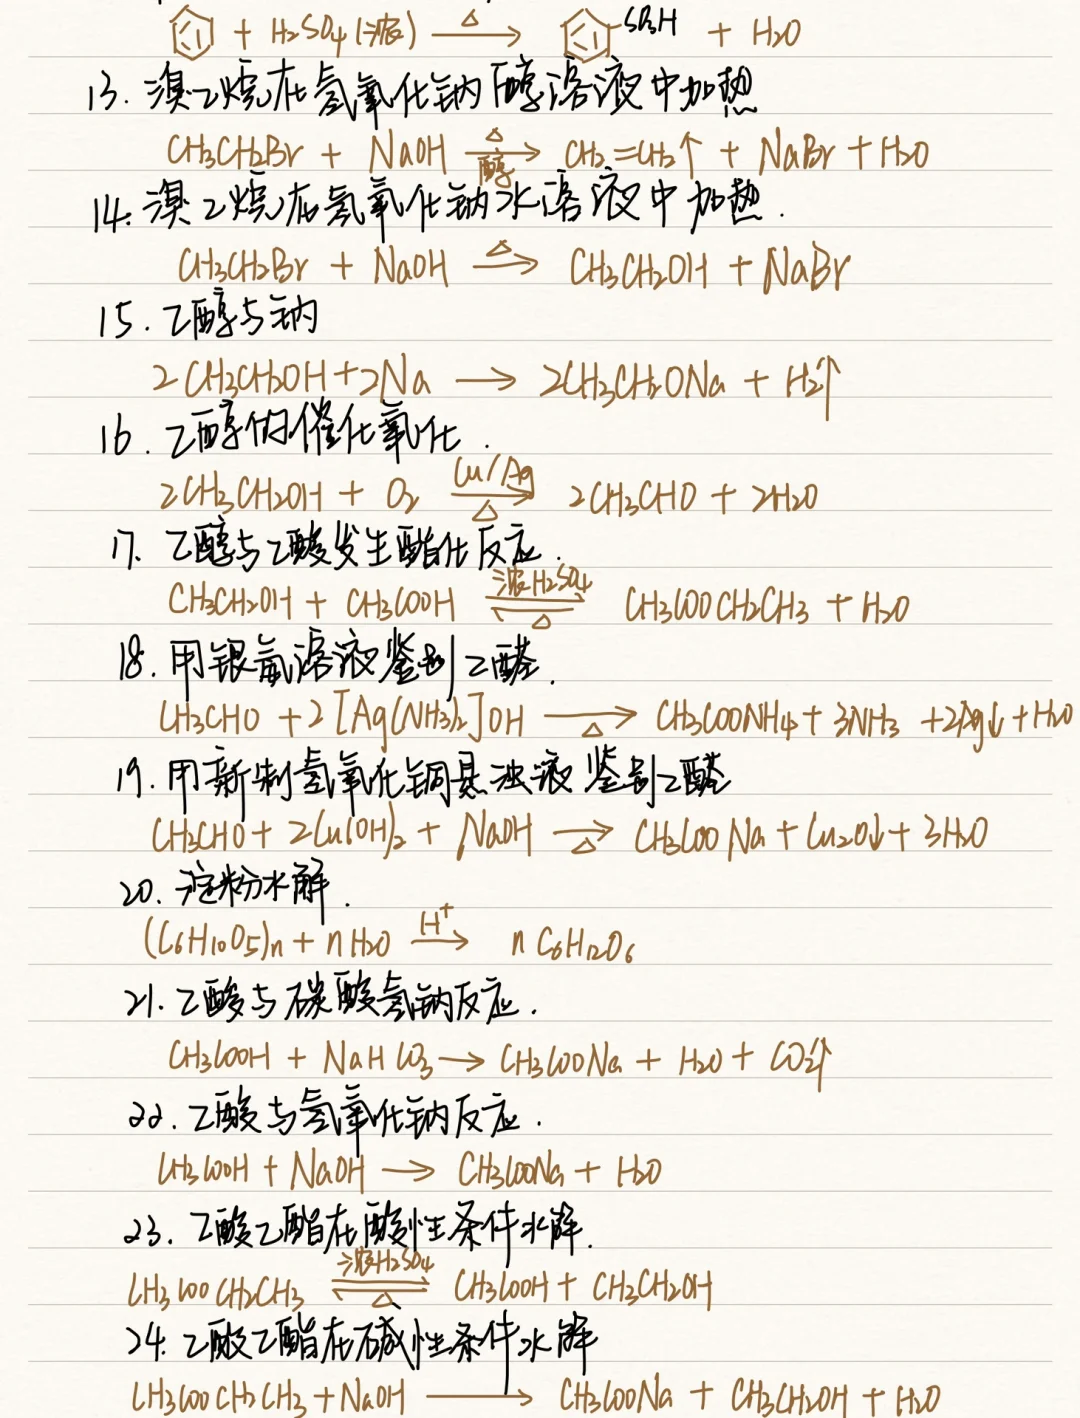 + H₂SO₄(浓) —△→ SO₃H + H₂O
13. 溴乙烷在氢氧化钠醇溶液中加热
CH₃CH₂Br + NaOH —△/醇→ CH₂=CH₂↑ + NaBr + H₂O
14. 溴乙烷在氢氧化钠水溶液中加热.
CH₃CH₂Br + NaOH —△→ CH₃CH₂OH + NaBr
15. 乙醇与钠
2CH₃CH₂OH + 2Na → 2CH₃CH₂ONa + H₂↑
16. 乙醇的催化氧化.
2CH₃CH₂OH + O₂ —Cu/Ag/△→ 2CH₃CHO + 2H₂O
17. 乙醇与乙酸发生酯化反应.
CH₃CH₂OH + CH₃COOH ⇌浓H₂SO₄/△ CH₃COOCH₂CH₃ + H₂O
18. 用银氨溶液鉴别乙醛.
CH₃CHO + 2[Ag(NH₃)₂]OH —△→ CH₃COONH₄ + 3NH₃ + 2Ag↓ + H₂O
19. 用新制氢氧化铜悬浊液鉴别乙醛
CH₃CHO + 2Cu(OH)₂ + NaOH —△→ CH₃COONa + Cu₂O↓ + 3H₂O
20. 淀粉水解.
(C₆H₁₀O₅)n + nH₂O —H⁺→ nC₆H₁₂O₆
21. 乙酸与碳酸氢钠反应.
CH₃COOH + NaHCO₃ → CH₃COONa + H₂O + CO₂↑
22. 乙酸与氢氧化钠反应.
CH₃COOH + NaOH → CH₃COONa + H₂O
23. 乙酸乙酯在酸性条件水解.
CH₃COOCH₂CH₃ ⇌浓H₂SO₄/△ CH₃COOH + CH₃CH₂OH
24. 乙酸乙酯在碱性条件水解
CH₃COOCH₂CH₃ + NaOH → CH₃COONa + CH₃CH₂OH + H₂O